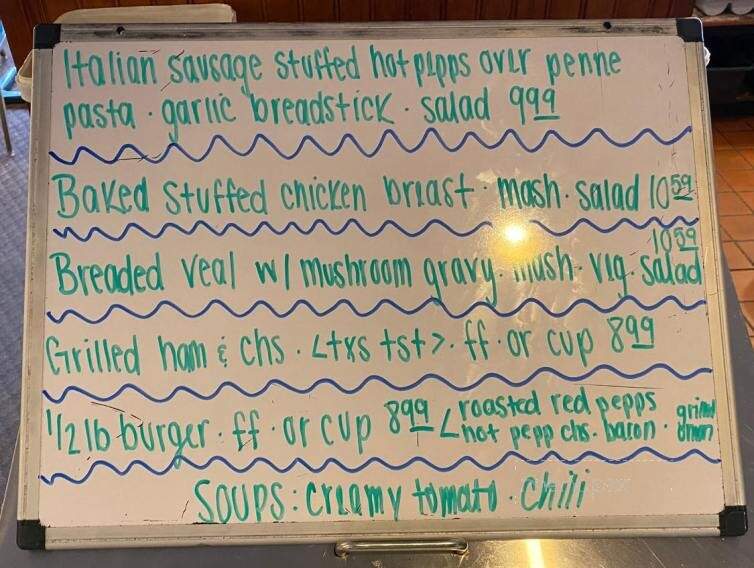 Italian sausage stuffed hot pepps over penne
pasta · garlic breadstick · salad 9 99
Baked stuffed chicken breast · mash · salad 10 59
10 59
Breaded veal w/ mushroom gravy · mash · veg · salad
Grilled ham & chs · <txs tst> · ff · or cup 8 99
1/2 lb burger · ff · or cup 8 99 < roasted red pepps
hot pepp chs · bacon · grilled
onion
SOUPS: creamy tomato · chili